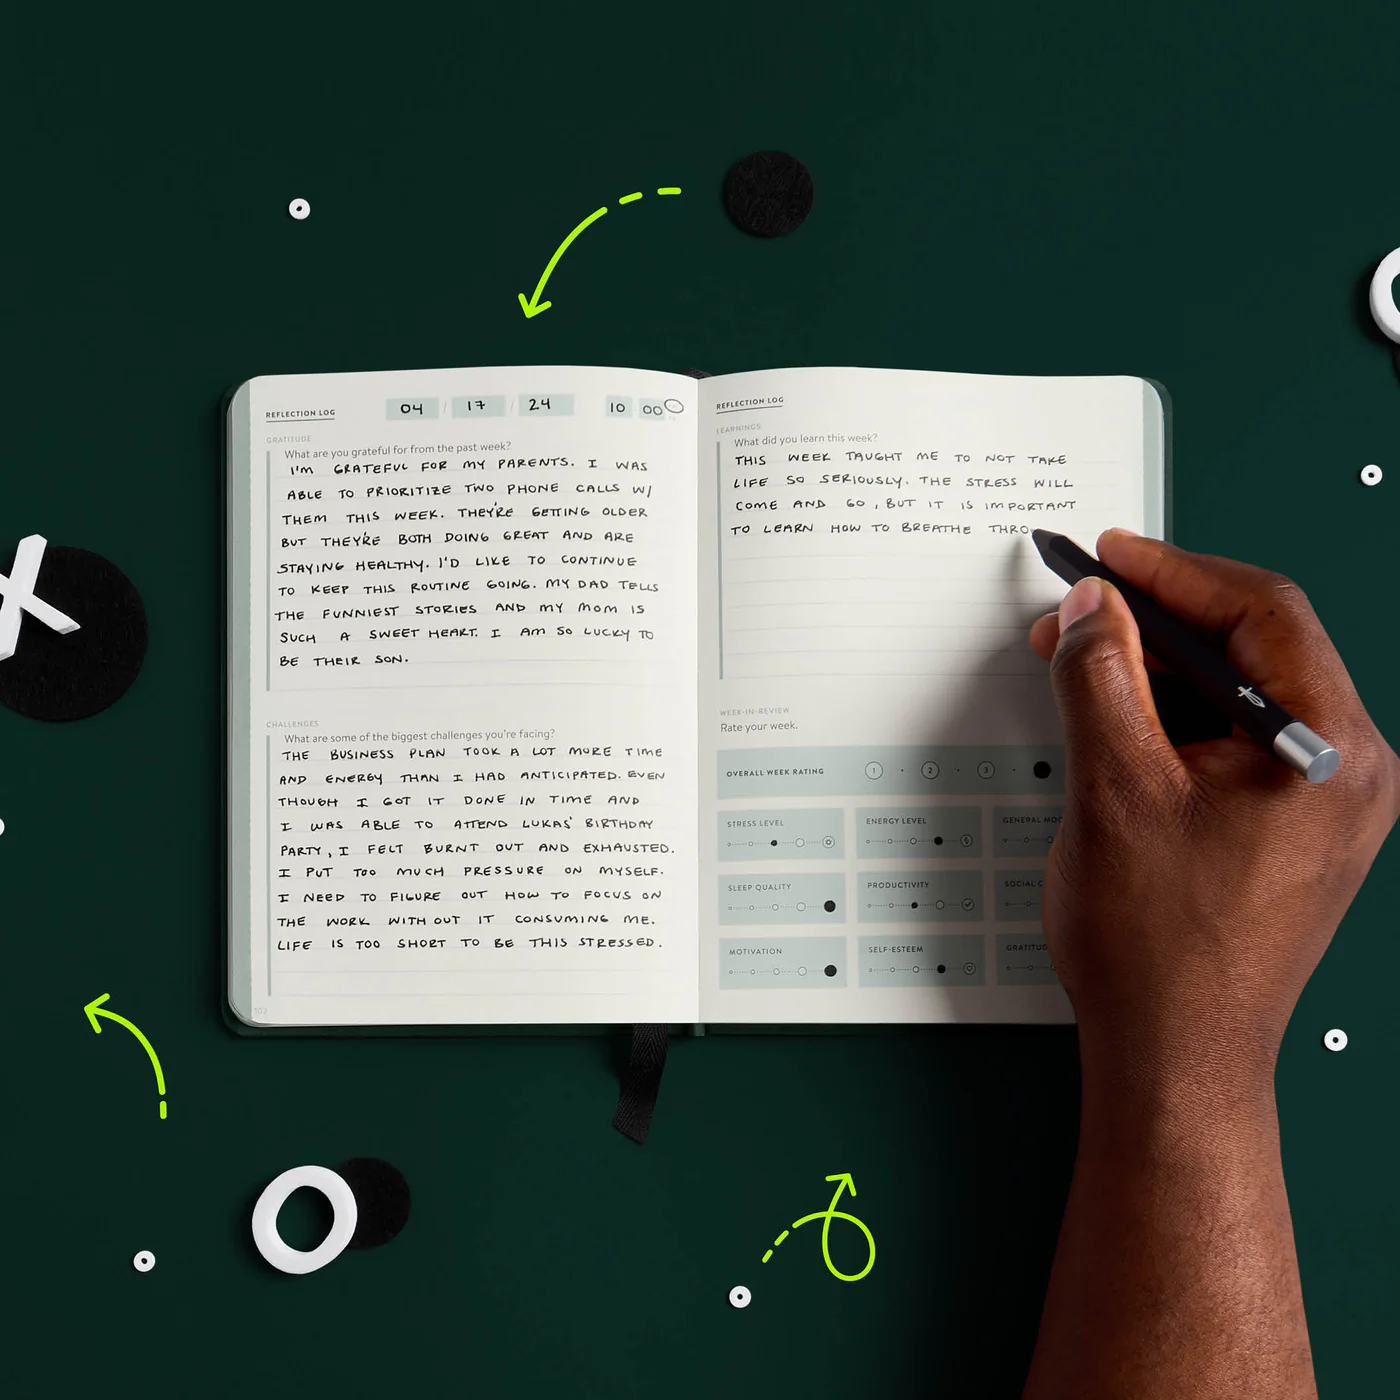 REFLECTION LOG 04 / 17 / 24 10 00
GRATITUDE
What are you grateful for from the past week?
I'M GRATEFUL FOR MY PARENTS. I WAS
ABLE TO PRIORITIZE TWO PHONE CALLS W/
THEM THIS WEEK. THEY'RE GETTING OLDER
BUT THEY'RE BOTH DOING GREAT AND ARE
STAYING HEALTHY. I'D LIKE TO CONTINUE
TO KEEP THIS ROUTINE GOING. MY DAD TELLS
THE FUNNIEST STORIES AND MY MOM IS
SUCH A SWEET HEART. I AM SO LUCKY TO
BE THEIR SON.
CHALLENGES
What are some of the biggest challenges you're facing?
THE BUSINESS PLAN TOOK A LOT MORE TIME
AND ENERGY THAN I HAD ANTICIPATED. EVEN
THOUGH I GOT IT DONE IN TIME AND
I WAS ABLE TO ATTEND LUKAS' BIRTHDAY
PARTY, I FELT BURNT OUT AND EXHAUSTED.
I PUT TOO MUCH PRESSURE ON MYSELF.
I NEED TO FIGURE OUT HOW TO FOCUS ON
THE WORK WITH OUT IT CONSUMING ME.
LIFE IS TOO SHORT TO BE THIS STRESSED.
102
REFLECTION LOG
LEARNINGS
What did you learn this week?
THIS WEEK TAUGHT ME TO NOT TAKE
LIFE SO SERIOUSLY. THE STRESS WILL
COME AND GO, BUT IT IS IMPORTANT
TO LEARN HOW TO BREATHE THRO
WEEK-IN-REVIEW
Rate your week.
OVERALL WEEK RATING 1 2 3
STRESS LEVEL ENERGY LEVEL GENERAL MOO
SLEEP QUALITY PRODUCTIVITY SOCIAL C
MOTIVATION SELF-ESTEEM GRATITUD
X
O